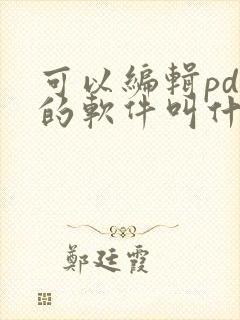 可以編輯pd
的軟件叫什
鄭廷霞